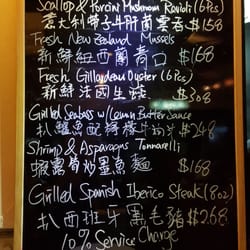 Scallop & Porcini Mushroom Ravioli (6 Pcs)
意大利帶子牛肝菌雲吞 $158
Fresh New Zealand Mussels
新鮮紐西蘭青口 $168
Fresh Gillardeau Oyster (6 Pcs)
新鮮法國生蠔 $308
Grilled Seabass w/ Lemon Butter Sauce
扒鱸魚配檸檬牛油汁 $248
Shrimp & Asparagus Tonnarelli
蝦露筍炒墨魚麵 $168
Grilled Spanish Iberico Steak (8oz)
扒西班牙黑毛豬 $268
10% Service Charge